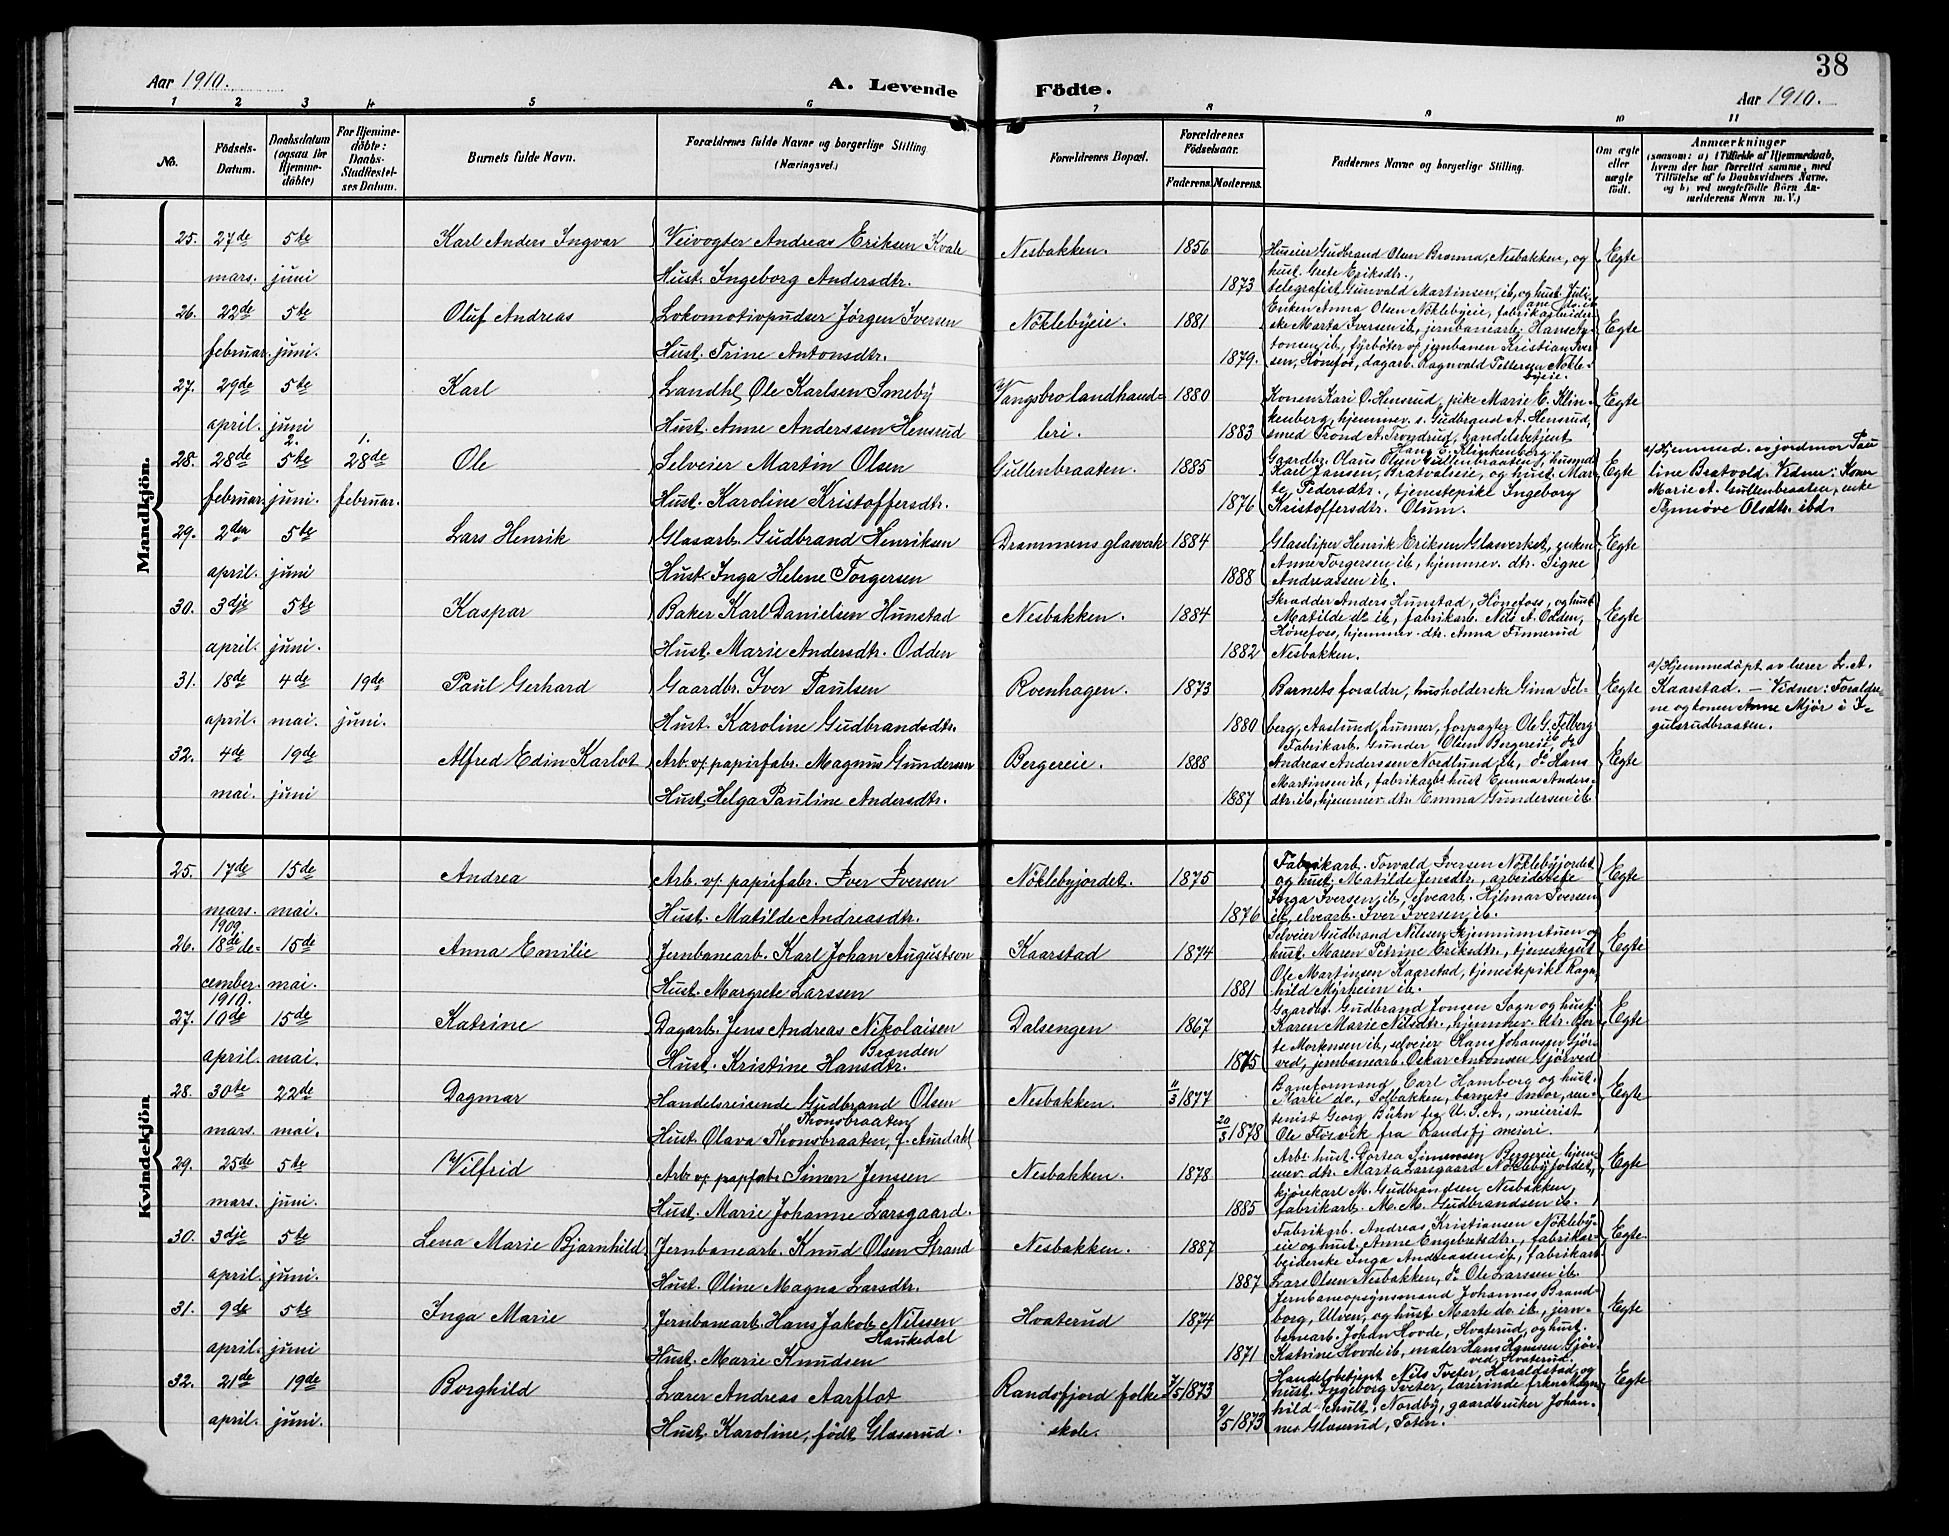 38
Aar 1910.
A. Levende Födte.
Aar 1910.
1 2 3 4 5 6 7 8 9 10 11
No.
Födsels-Datum.
Daabsdatum (ogsaa for Hjemmedöbte)
For Hjemmedöbte: Daabs-Stadfæstelses Datum.
Barnets fulde Navn.
Forældrenes fulde Navne og borgerlige Stilling (Næringsvei.)
Forældrenes Bopæl.
Forældrenes Födselsaar.
Faderens. Moderens.
Faddernes Navne og borgerlige Stilling.
Om ægte eller uægte födt.
Anmærkninger
(saasom: a) i Tilfælde af Hjemmedaab, hvem der har forrettet samme, med Tilföielse af to Daabsvidners Navne, og b) ved uægtefödte Börn Anmelderens Navn m. V.)
Mandkjön.
25. 27de mars. 5te juni Karl Anders Ingvar
Veivogter Andreas Eriksen Kvale
Hust. Ingeborg Andersdtr.
Nesbakken. 1856 1873
Huseier Gudbrand Olsen Brønna, Nesbakken, og
hust. Grete Eriksdtr.,
telegrafist Gunvald Martinsen, ib, og hust. Juliane do. ib.
Egte
26. 22de februar. 5te juni. Oluf Andreas
Lokomotivpudser Jörgen Iversen
Hust. Trine Antonsdtr.
Nöklebyeie. 1881 1879.
Enken Anna Olsen Nöklebyeie, fabrikarbeider-
ske Marta Iversen ib, jernbanearb. Hans An-
tonsen ib, fyrböter v/ jernbanen Kristian Iver-
sen, Hönefos, dagarb. Ragnvald Pettersen Nökle-
byeie.
Egte
27. 29de april. 5te juni Karl
Landhl. Ole Karlsen Smeby
Hust. Anne Anderssen Hensrud
Vangsbro landhand-
leri. 1880 1883
Konen Kari O. Hensrud, pike Marie E. Klin-
kenberg, hjemmev. s. Gudbrand A. Hensrud,
smed Trond A. Trondrud, handelsbetjent
Hans E. Klinkenberg.
Egte
28. 28de februar 2. 5te juni. 1. 28de februar. Ole
Selveier Martin Olsen
Hust. Karoline Kristoffersdtr.
Gullenbraaten. 1885 1876
Gaardbr. Olaus Olsen Gullenbraaten, husmd.
Karl Jansen, Bratvaleie, og hust. Mar-
te Pedersdtr., tjenestepike Ingeborg
Kristoffersdtr. Olum.
Egte
a/ Hjemmed. av jordmor Pau-
line Bratvold. Vidner: Konen
Marie A. Gullenbraaten, enke
Synnöve Olsdtr. ibd.
29. 2den april. 5te juni Lars Henrik
Glasarb. Gudbrand Henriksen
Hust. Inga Helene Torgersen
Drammens glasverk 1884 1888
Glassliper Henrik Eriksen Glasverket, enken
Anne Torgersen ib, hjemmev. dtr. Signe
Andreassen ib.
Egte
30. 3dje april. 5te juni. Kaspar
Baker Karl Danielsen Hunstad
Hust. Marie Andersdtr. Odden
Nesbakken. 1884 1882
Skrædder Anders Hunstad, Hönefoss, og hust.
Matilde do ib, fabrikarb. Nils A. Odden,
Hönefoss, hjemmev. dtr. Anna Finnerud
Nesbakken.
Egte
31. 18de april. 4de mai. 19de juni. Paul Gerhard
Gaardbr. Iver Paulsen
Hust. Karoline Gudbrandsdtr.
Roenhagen. 1873 1880
Barnets forældre, husholderske Gina Fel-
berg, Aaslund, hunner, forpagter Ole G. Felberg
ib.
Egte
a/ Hjemmedöpt av lærer L. A.
Kaarstad. — Vidner: Forældre-
ne og konen Anne Mjör i I-
gulsrudbraaten.
32. 4de mai. 19de juni Alfred Edin Karlot
Arb. v/ papirfabr. Magnus Gundersen
Hust. Helga Pauline Andersdtr.
Bergereie. 1888 1887
Fabrikarb. Gunder Olsen Bergereie, do
Andreas Anderssen Nordlund ib, do Hans
Martinsen ib, fabrikarbs hust Emma Anders-
dtr. ib, hjemmev. dtr. Emma Gundersen ib.
Egte
Kvindekjön
25. 17de mars. 15de mai. Andrea
Arb. v/ papirfabr. Iver Iversen
Hust. Matilde Andreasdtr.
Nöklebyjordet. 1875 1876
Fabrikarb. Torvald Iversen Nöklebyjordet
og hust. Matilde Jensdtr., arbeiderske
Inga Iversen ib, elvearb. Hjilmar Iversen
ib, elvearb. Iver Iversen ib.
Egte
26. 1909 18de de-
cember. 15de mai. Anna Emilie
Jernbanearb. Karl Johan Augustson
Hust. Margrete Larssen
Kaarstad 1874 1881
Selveier Gudbrand Nilsen Hjemmumstuen og
hust. Maren Petrine Eriksdtr., tjenestegut
Ole Martinsen Kaarstad, tjenestepike Ragn-
hild Myrheim ib.
Egte
27. 1910. 10de april. 15de mai. Katrine
Dagarb. Jens Andreas Nikolaisen
Brænden
Hust. Kristine Hansdtr.
Dalsengen 1867 1875
Gaardbr. Gudbrand Jonsen Sogn og hust.
Karen Marie Nilsdtr., hjemmev. dtr. Bor-
te Morknsen ib, selveier Hans Johansen Gjör-
ved, jernbanearb. Oskar Antonsen Gjörved
Egte
28. 30te mars. 22de mai. Dagmar
Handelsreisende Gudbrand Olsen
Thonsbraaten
Hust. Olava Thonsbraaten, f. Aurdahl
Nesbakken. 11/3 1877 20/3 1878
Baneformand Carl Hamberg og hust.
Marie do., Solbakken, barnets mor, ren-
tenist Georg Bühn fra U. S. A., meierist
Ole Flisvik fra Randsfj meieri.
Egte
29. 25de mars. 5te juni. Wilfrid
Arb. v/ papfabr. Simon Jenssen
Hust. Marie Johanne Larsgaard.
Nesbakken. 1878 1885
Arbs hust. Dortea Simensen Bergereie hjem-
mev. dtr. Marta Larsgaard Nöklebyjordet,
kjörekarl M. Gudbrandsen, Nesbakken,
fabrikarb. M. M. Gudbrandsen ib.
Egte
30. 3dje april. 5te juni. Lena Marie Bjarnhild
Jernbanearb. Knud Olsen Strand
Hust. Oline Magna Larsdtr.
Nesbakken. 1887 1887
Fabrikarb. Andreas Kristiansen Nökleby-
eie og hust. Anne Engebretsdtr., fabrikar-
beiderske Inga Andreassen ib, fabrikarb.
Lars Olsen Nesbakken, do Ole Larssen ib.
Egte
31. 9de april. 5te juni Inga Marie
Jernbanearb. Hans Jakob Nilsen
Haukedal
Hust. Marie Knudsen
Hvaterud 1874 1871
Jernbaneopsynsmand Johannes Brand-
borg, Ulven, og hust. Marte do. ib, jern-
banearb. Johan Hovde, Hvaterud, og hust.
Katrine Hovde ib, maler Hans Hansen Gjör-
ved, Hvaterud.
Egte
32. 21de april. 19de juni. Borghild
Lærer Andreas Aarflot
Hust. Karoline, födt Glæserud.
Randsfjord folke-
skole. 7/5 1873 9/5 1873
Handelsbetjent Nils Tveter, Haraldstad, og
hust. Ingeborg Tveter, lærerinde frkn Ragn-
hild Schult, Nordby, gaardbruker Johan-
nes Glæserud, Toten.
Egte